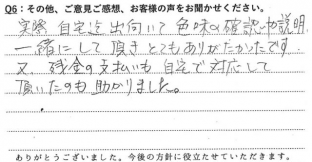 Q6:その他、ご意見ご感想、お客様の声をお聞かせください。
実際 自宅を出向いて 色味の確認や説明
一緒にして頂きとてもありがたかったです。
又、残金の支払いも自宅で対応して
頂いたのも助かりました。
ありがとうございました。今後の方針に役立たせていただきます。